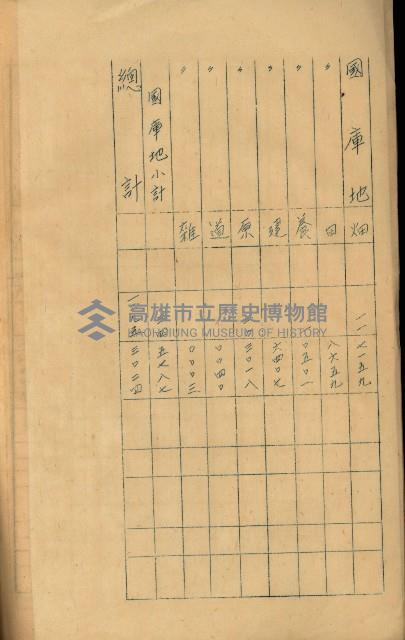 國庫地 畑 一一 七一五九
〃 田 八六五九
〃 養 〇五〇一
〃 建 六四〇七
〃 原 三〇一八
〃 道 〇〇四〇
〃 雜 〇〇〇三
國庫地小計 四五七八七
總計 三〇三四
高雄市立歷史博物館
KAOHSIUNG MUSEUM OF HISTORY